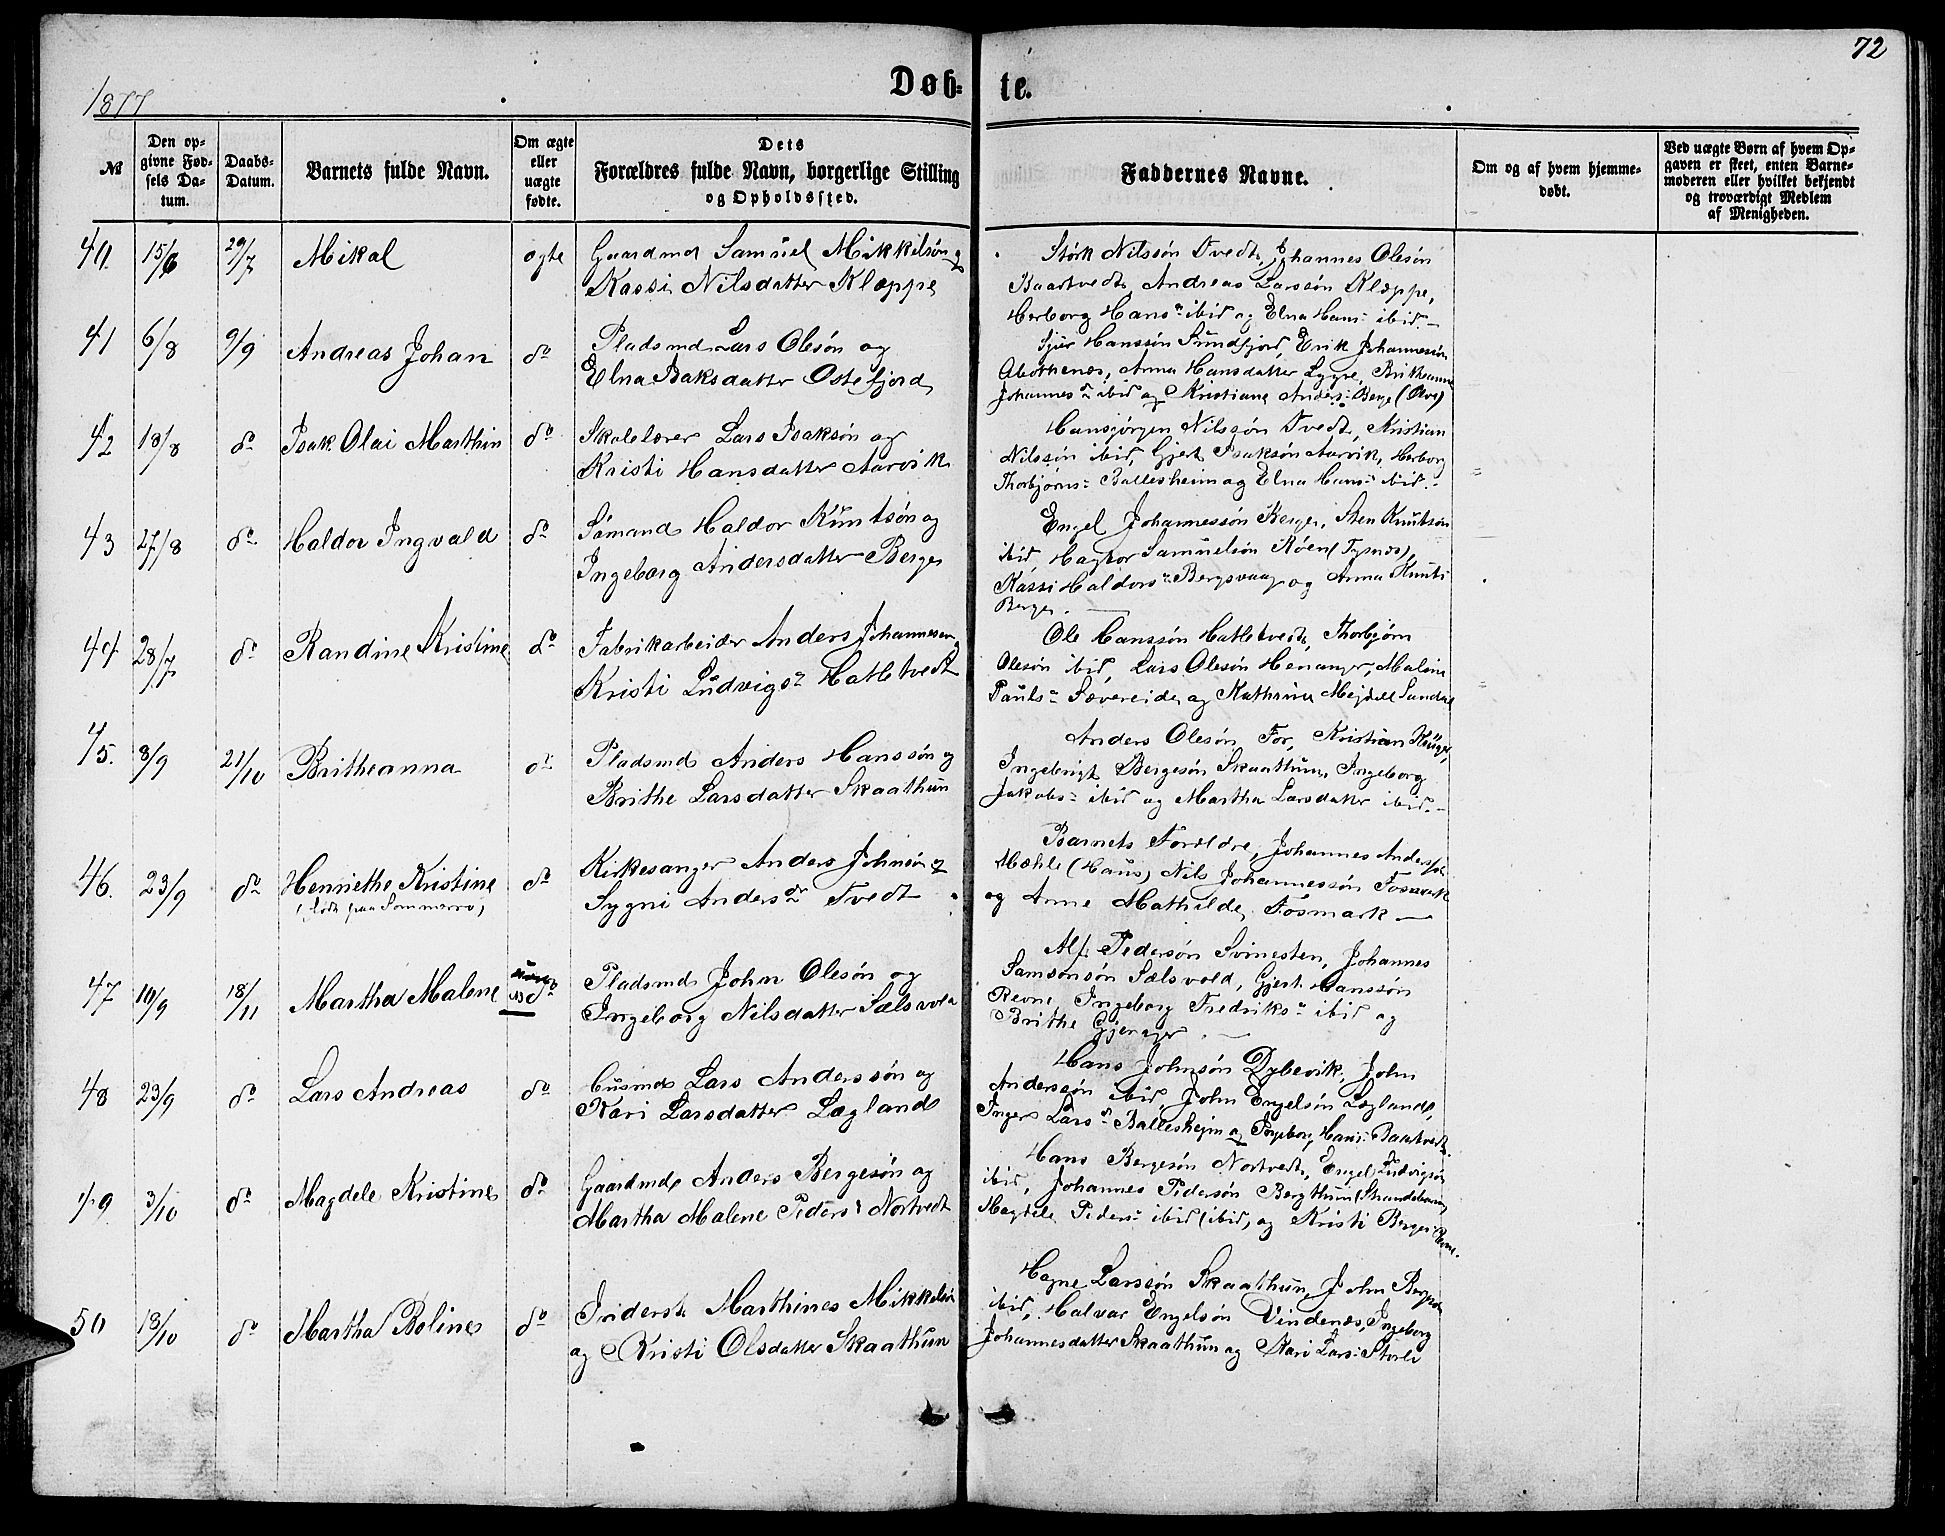 72
1877
Døb- te.
№
Den opgivne Fødsels Datum.
Daabs-Datum.
Barnets fulde Navn.
Om ægte eller uægte fødte.
Dets Forældres fulde Navn, borgerlige Stilling og Opholdssted.
Faddernes Navne.
Om og af hvem hjemmedøbt.
Ved uægte Børn af hvem Opgaven er skeet, enten Barnemoderen eller hvilket bekjendt og troværdigt Medlem af Menigheden.
40. 15/6 29/7 Mikal ægte Gaardmd Samuel Mikkelsøn og
Kassi Nilsdatter Klæppe
Størk Nilssøn Tvedt, Johannes Olesøn
Baartvedt, Andreas Larssøn Klæppe,
Herborg Hans- ibid og Elna Hans- ibid.
41 6/8 9/9 Andreas Johan do Pladsmd Lars Olesøn og
Elna Isaksdatter Ostefjord
Hanssøn Sundfjord, Erik Johannessøn
Anna Hansdatter Lygre, Britheanna
Johannes- ibid og Kristiane Anders- Berge (Ølve)
42 18/8 do Isak Olai Marthin do Skolelærer Lars Isaksøn og
Kristi Hansdatter Aarvik
Hansjørgen Nilssøn Tvedt, Kristian
Nilssøn ibid, Gjert Isaksøn Aarvik, Herborg
Thorbjørns- Ballesheim og Elna Hans- ibid.
43 27/8 do Haldor Ingvald do Sømand Haldor Knutsøn og
Ingeborg Andersdatter Berge
Engel Johannessøn Berge, Sten Knutsøn
ibid, Samuelsøn Røen (Tysnes),
Kassi Haldors- Bergsvaag og Anna Knuts-
Berge.
44. 28/7 do Randine Kristine do Fabrikarbeider Anders Johannesen
Kristi Ludvigs- Hatletvedt
Ole Hanssøn Hatletvedt, Thorbjørn
Olesøn ibid, Lars Olesøn Henanger, Malene
Pauls- Sævereide og Kathrina Mejdell Sundal
45. 8/9 21/10 Britheanna do Pladsmd Anders Hanssøn og
Brithe Larsdatter Skaathun
Anders Olesøn, Kristian
Ingebrigt Bergesøn Skaathun, Ingeborg
Jakobs- ibid og Martha Larsdatter ibid.
46. 23/9 do Henriethe Kristine do Kirkesanger Anders Johnsøn og
(født paa Sommerro)
Sygni Andersdr Tvedt
Barnets Forældre, Johannes Anderssøn
Mæhle (Haus) Nils Johannessøn Fosmark
og Anne Mathilde Fosmark
47 10/9 18/11 Martha Malene do Pladsmd John Olesøn og
Ingeborg Nilsdatter Sælsvold
Alf Pedersøn Svinesten, Johannes
Samsonsøn Sælsvold, Gjert Hanssøn
Revne, Ingeborg Fredriks- ibid og
Brithe Gjerager
48 23/9 do Lars Andreas do Husmd Lars Anderssøn og
Kari Larsdatter Lægland
Hans Johnsøn Dybevik, John
Anderssøn ibid, John Engelsøn Lægland,
Inger Lars- Ballesheim og Ingeborg Hans- Baatvedt.
49 3/10 do Magdele Kristine do Gaardmd Anders Bergesøn og
Martha Malene Peders- Nortvedt
Hans Bergesøn Nortvedt, Engel Ludvigsøn
ibid, Johannes Pedersøn Bergthun (Strandebarm)
Magdele Peders- ibid (ibid) og Kristi Berges- Revne.
50 13/10 do Martha Boline do Inderst Marthines Mikkelsøn
og Kristi Olsdatter Skaathun
Hagne Larssøn Skaathun, John Bergesøn
ibid, Halvar Engelsøn Vindenes, Ingeborg
Johannesdatter Skaathun og Kari Lars- Storli